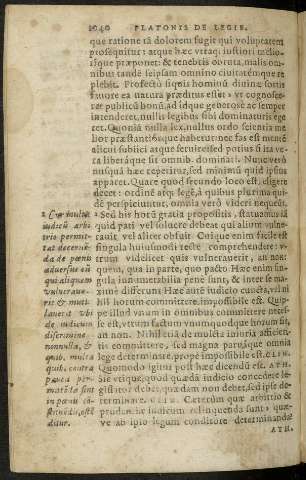 1040 PLATONIS DE LEGIB.
que ratione tã dolorem fugit qui voluptatem
prosequitur: atque hæc vtraq; iustiori melio-
ríque præponet: & tenebris oborta, malis om-
nibus tandẽ seipsam omnino ciuitatémque re
plebit. Profectò siquis hominũ diuina sortis
fauore ea natura præditus esset: vt cognosce-
ret publicũ bonũ, ad idque generose ac semper
intenderet, nullis legibus sibi dominaturis ege
ret. Quoniã nulla lex, nullus ordo scientia me
lior præstantiórque habetur: nec fas est mentẽ
alicui subiici atque seruire: sed potius si ita ve-
ra liberáque sit omnib. dominari. Nunc verò
nusquã hæc reperitur, sed minimũ quid ipsius
apparet. Quare quod secundo loco est, eligere
decet: ordinẽ atq; legẽ, à quibus plurima qui-
dẽ perspiciuntur, omnia verò videri nequeũt.
Sed his horũ gratia propositis, statuamus iã
quid pati vel soluere debeat qui alium vulne-
rauit vel aliter obfuit. Cuique enim facile est
singula huiusmodi recte comprehendere: v-
trum videlicet quis vulnerauerit, an non:
quem, qua in parte, quo pacto. Hæc enim sin-
gula innumerabilia pene sunt, & inter se ma-
xime differunt. Hæc autẽ iudicio cuncta, vel ni
hil horum committere, impossibile est. Quip-
pe illud vnum in omnibus committere neces-
se est, vtrum factum vnumquodque horum sit,
an non. Nihil etiã de mulcta iniuria afficien-
tis committere, sed magna paruáque omnia
lege determinare, prope impossibile est. CLIN.
Quomodo igitur post hæc dicendũ est. ATH.
Sic vtique, quod quædã iudicio concedere le-
gislator debet, quædam non debet, sed ipse de-
terminare. CLIN. Cæterùm quæ arbitrio &
prudentiæ iudicum relinquenda sunt: quæ-
ve ab ipso legum conditore determinanda?
ATH.
Cur multa
iudicũ arbi
trio permit-
tat decernẽ-
da de pœnis
aduersus eũ
qui aliquem
vulneraue-
rit & muti-
lauerit vbi
de iudicum
discrimine
nonnulla, &
quib. multa
quib. contra
pauca per-
mittẽda sint
in pœnis cõ-
stituẽdis, ostẽ
ditur.